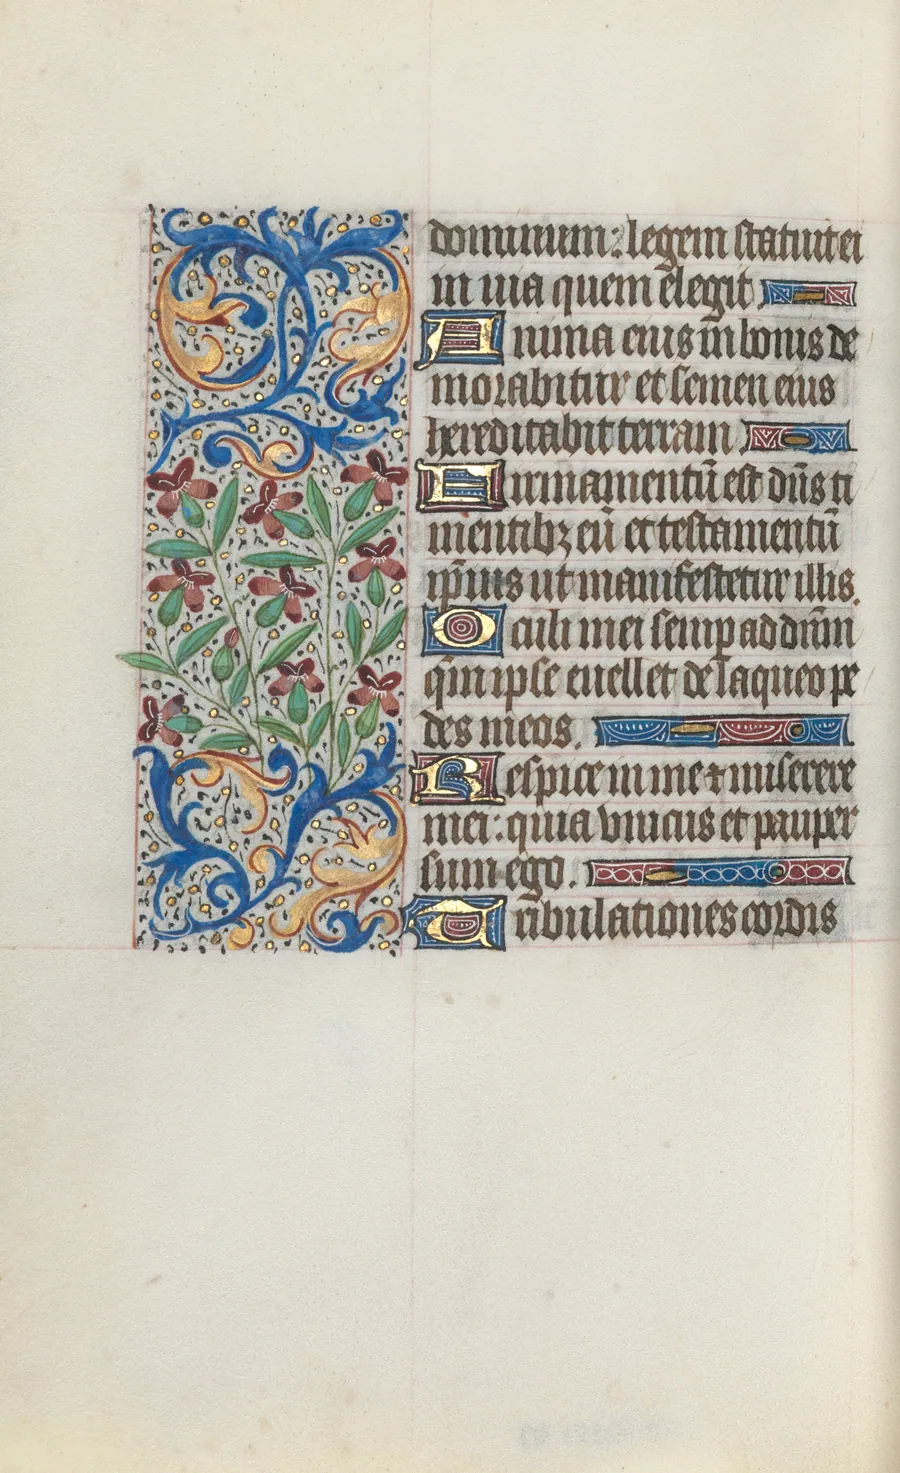 dominum: legem statuit ei
in uia quem elegit
Anima eius in bonis de
morabitur et semen eius
hereditabit terram
Firmamentū est dn̄s ti
mentibꝫ eū et testamentū
ip̄ius ut manifestetur illis.
Oculi mei semp̱ ad dnm̄
qm̄ ipse euellet de laqueo pe
des meos.
Respice in me ⁊ miserere
mei: quia vnicus et pauper
sum ego.
Tribulationes cordis